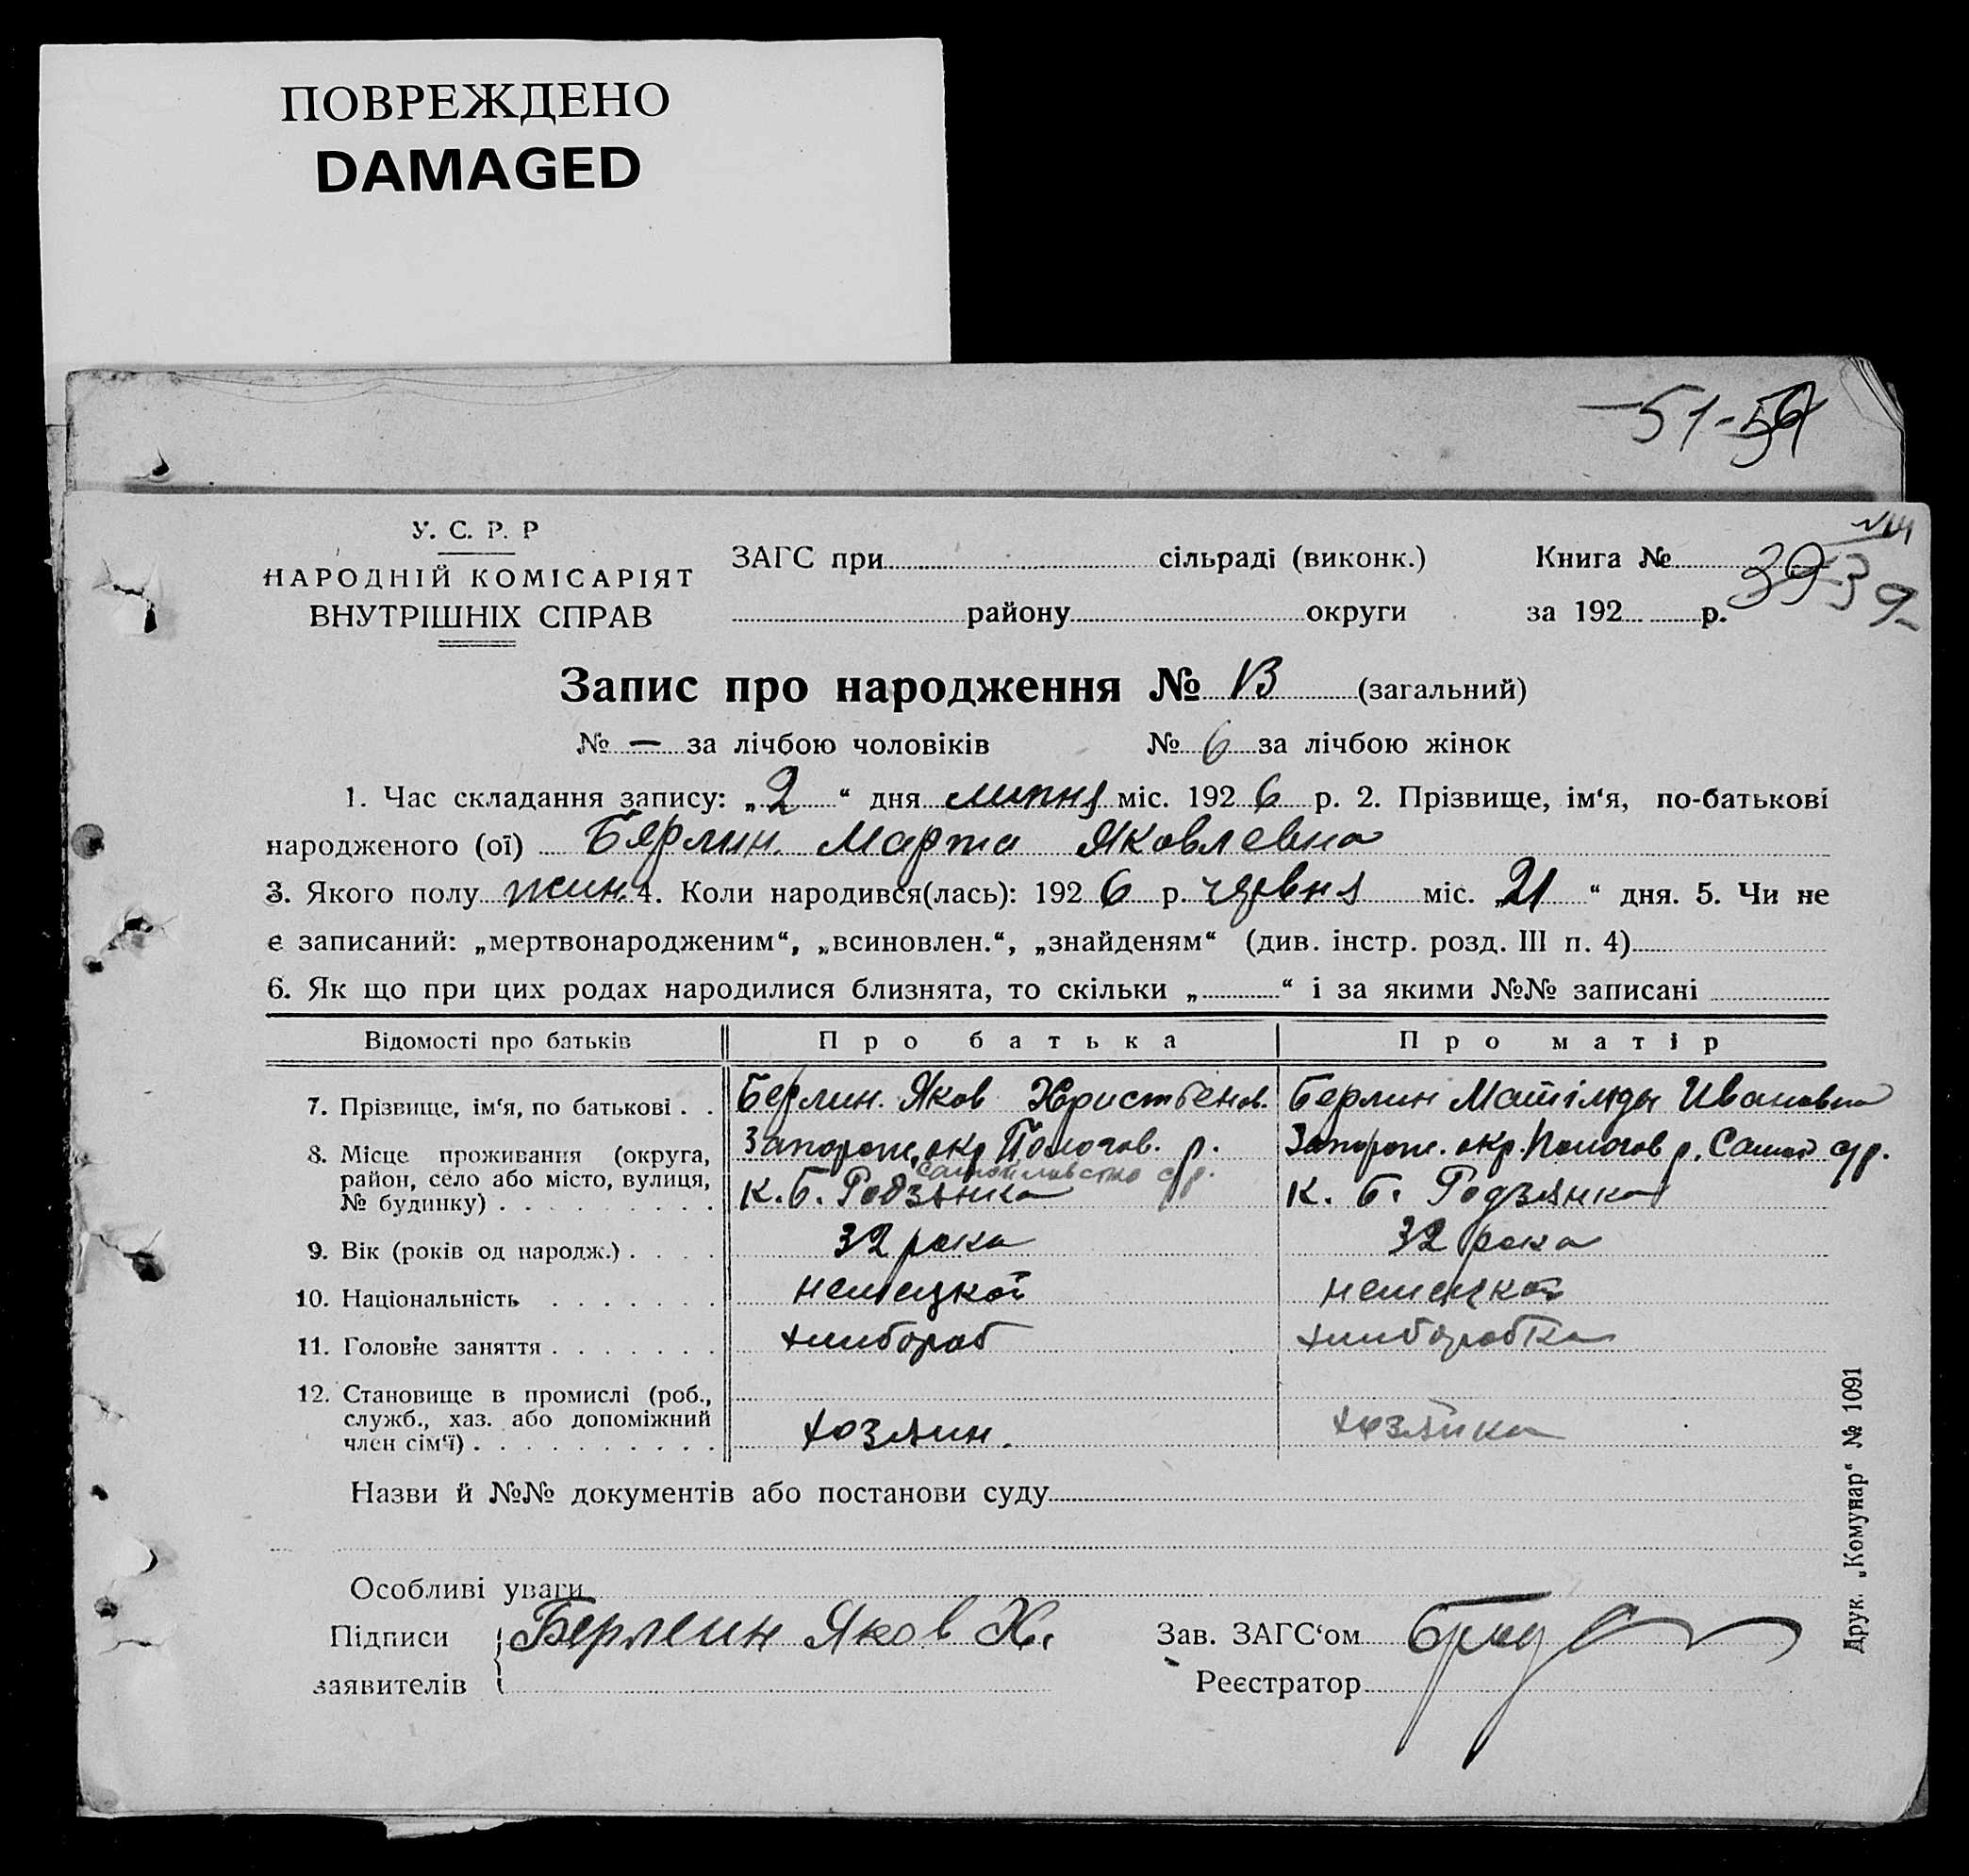 ПОВРЕЖДЕНО
DAMAGED
51-54
У. С. Р. Р
НАРОДНІЙ КОМІСАРІЯТ
ВНУТРІШНІХ СПРАВ
ЗАГС при сільраді (виконк.) Книга №
району округи за 192 р.
39 39
Запис про народження № 13 (загальний)
№ — за лічбою чоловіків № 6 за лічбою жінок
1. Час складання запису: „2“ дня липня міс. 1926 р. 2. Прізвище, ім‘я, по-батькові
народженого (ої) Берлин. Марта Яковлевна
3. Якого полу жин. 4. Коли народився(лась): 1926 р. червня міс. „21“ дня. 5. Чи не
є записаний: „мертвонародженим“, „всиновлен.“, „знайденям“ (див. інстр. розд. III п. 4)
6. Як що при цих родах народилися близнята, то скільки „ “ і за якими №№ записані
Відомості про батьків Про батька Про матір
7. Прізвище, ім‘я, по батькові . . Берлин. Яков Христьенов. Берлин Матільда Ивановна
8. Місце проживання (округа, Запорож. окр. Пологов. р. Запорож. окр. Пологов р. Самой с/р.
район, село або місто, вулиця,
№ будинку) . К. Б. Родзянка К. Б. Родзянка
9. Вік (років од народж.) . 32 рока 32 рока
10. Національність . немецкой немецкой
11. Головне заняття . хлибороб хлиборобка
12. Становище в промислі (роб.,
служб., хаз. або допоміжний
член сім‘ї) . хозяин. хозяйка
Назви й №№ документів або постанови суду
Особливі уваги
Підписи Берлин Яков Х. Зав. ЗАГС‘ом
заявителів Реєстратор
Друк. „Комунар“ № 1091